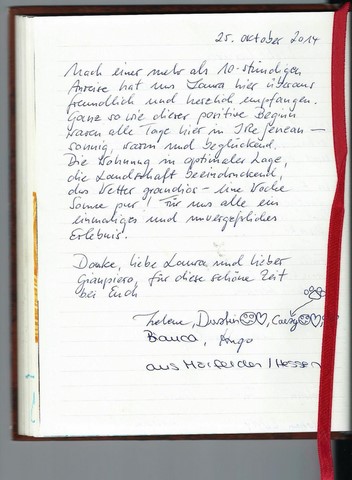 25. Oktober 2014
Nach einer mehr als 10-stündigen
Anreise hat uns Laura hier überaus
freundlich und herzlich empfangen.
Ganz so wie dieser positive Beginn
waren alle Tage hier in –
sonnig, warm und beglückend.
Die Wohnung in optimaler Lage,
die Landschaft beeindruckend,
das Wetter grandios – eine Woche
Sonne pur! Für uns alle ein
einmaliges und unvergeßliches
Erlebnis.
Danke, liebe Laura und lieber
Gianpiero, für diese schöne Zeit
bei Euch
Helene, Dustin
Bianca, Ingo
aus / Hessen